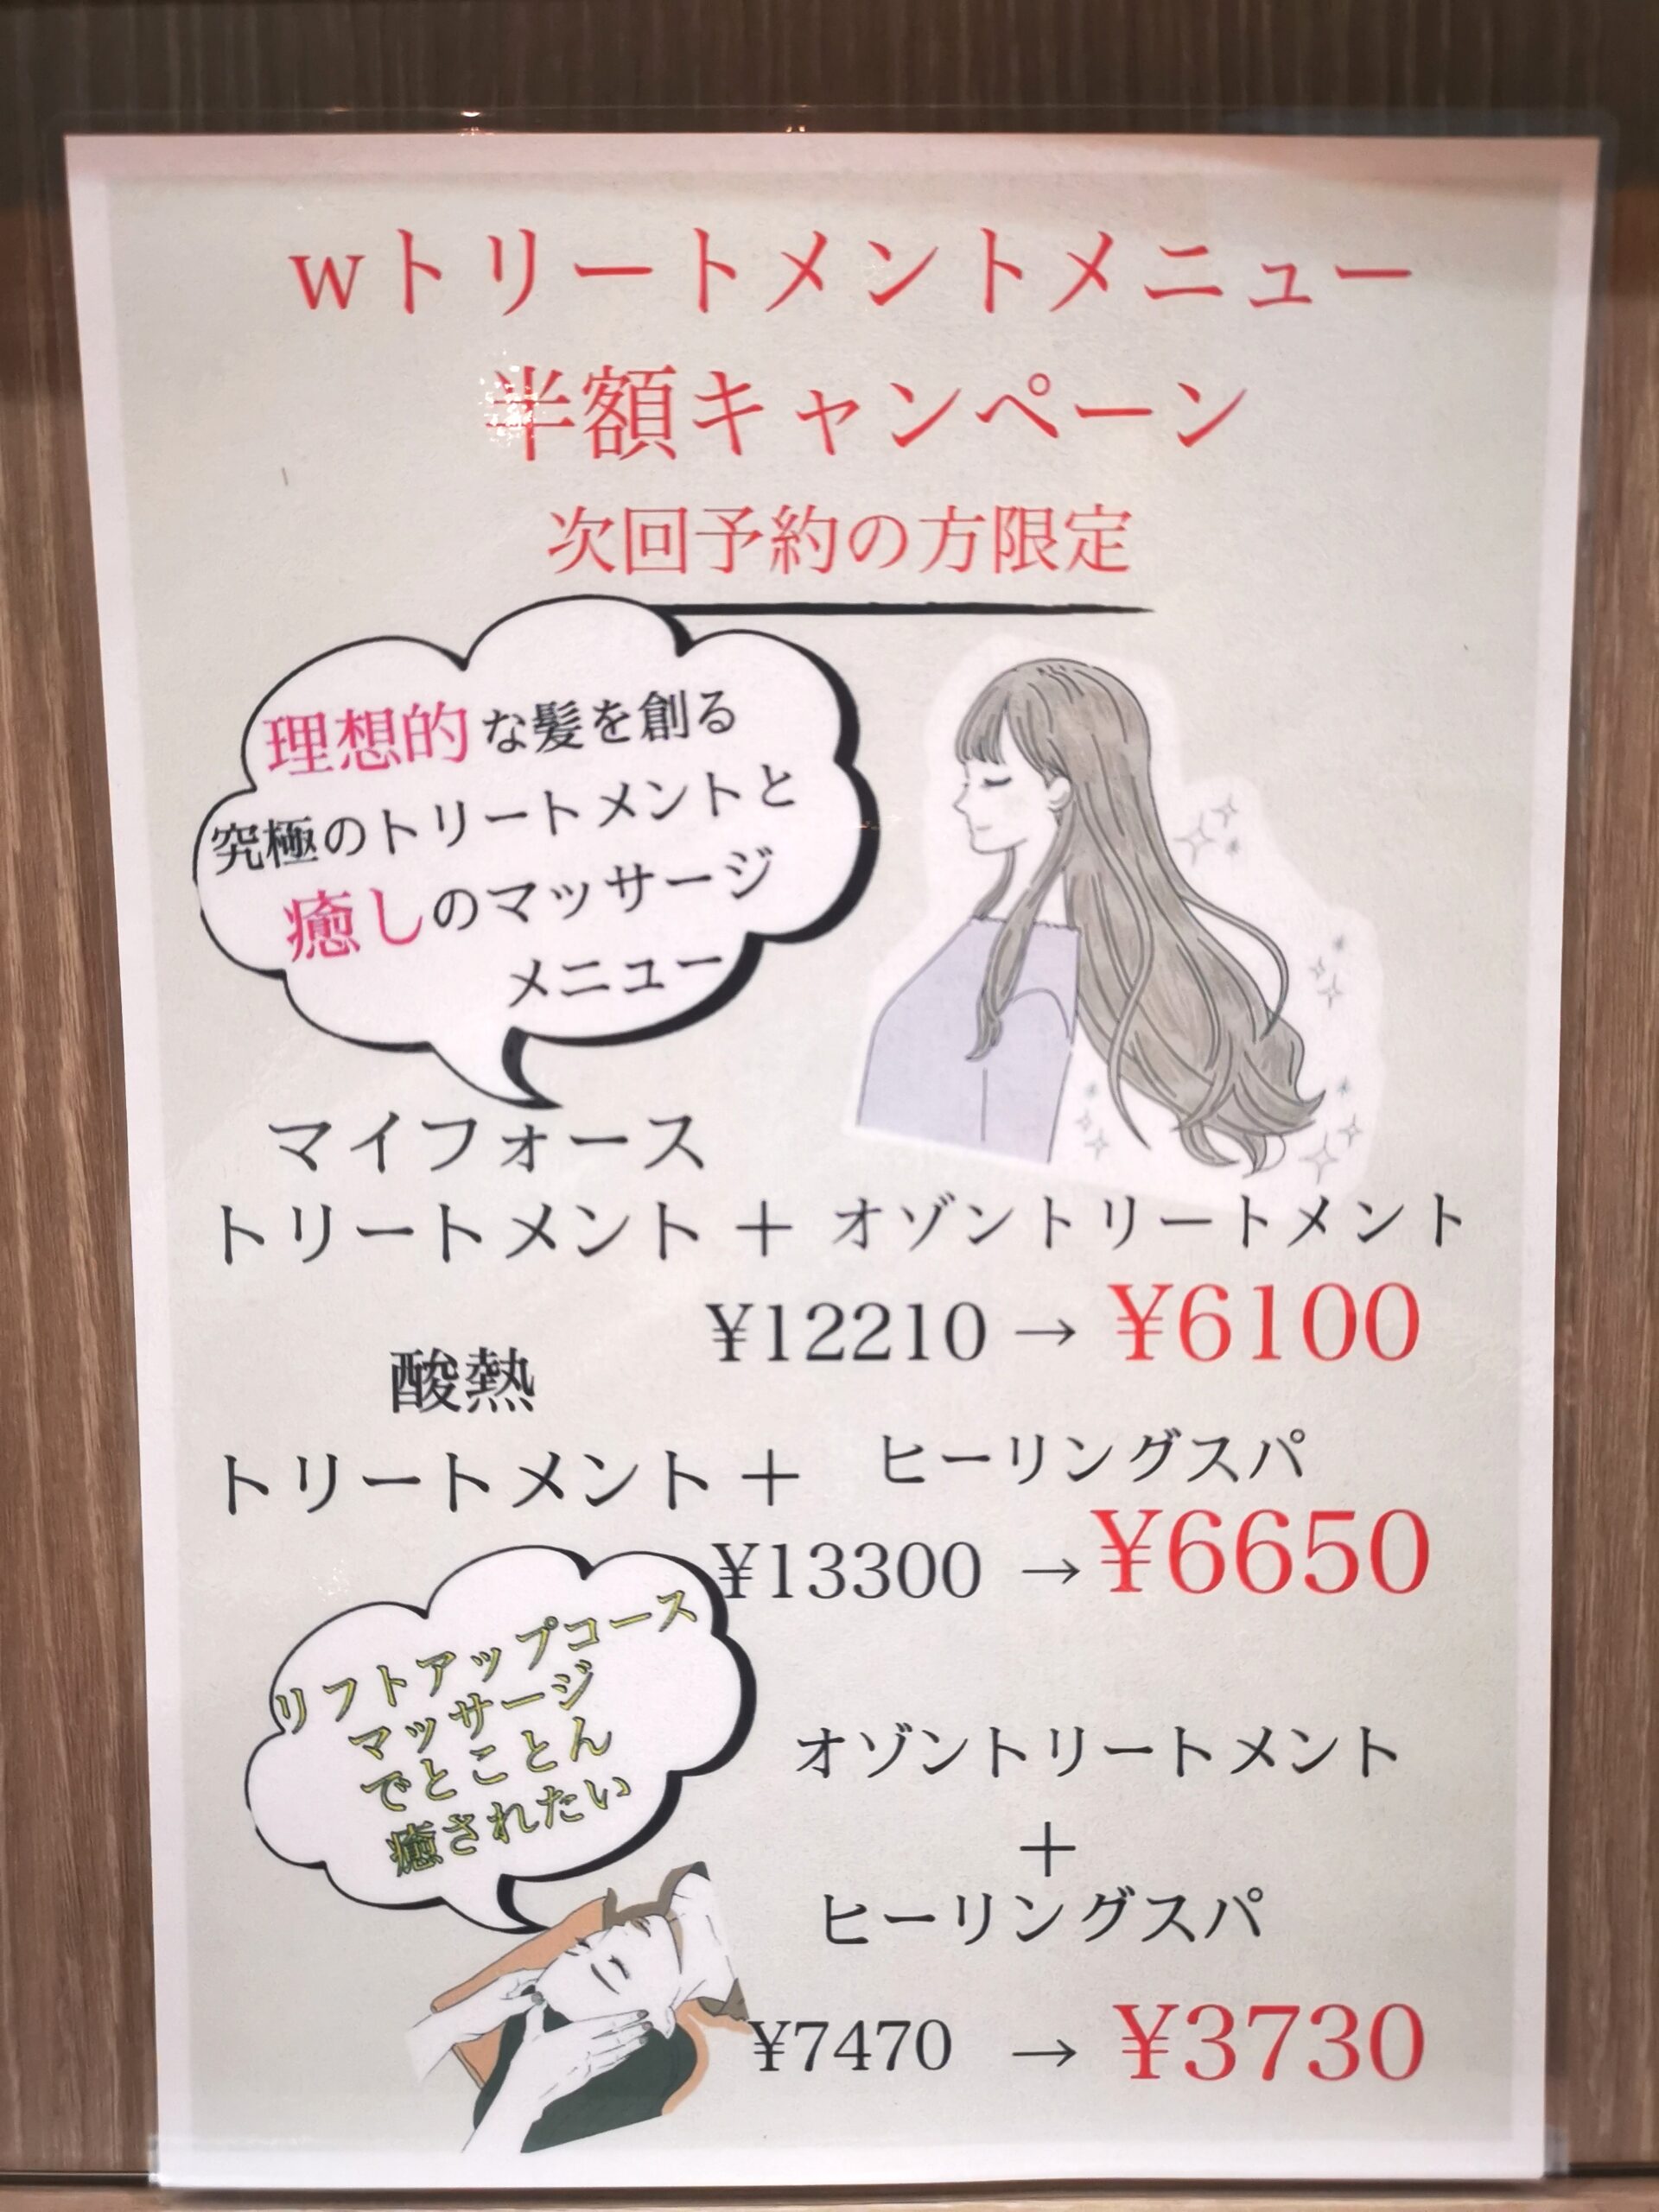 wトリートメントメニュー
半額キャンペーン
次回予約の方限定
理想的な髪を創る
究極のトリートメントと
癒しのマッサージ
メニュー
マイフォース
トリートメント + オゾントリートメント
¥12210 → ¥6100
酸熱
トリートメント + ヒーリングスパ
¥13300 → ¥6650
リフトアップコース
マッサージ
でとことん
癒されたい
オゾントリートメント
+
ヒーリングスパ
¥7470 → ¥3730